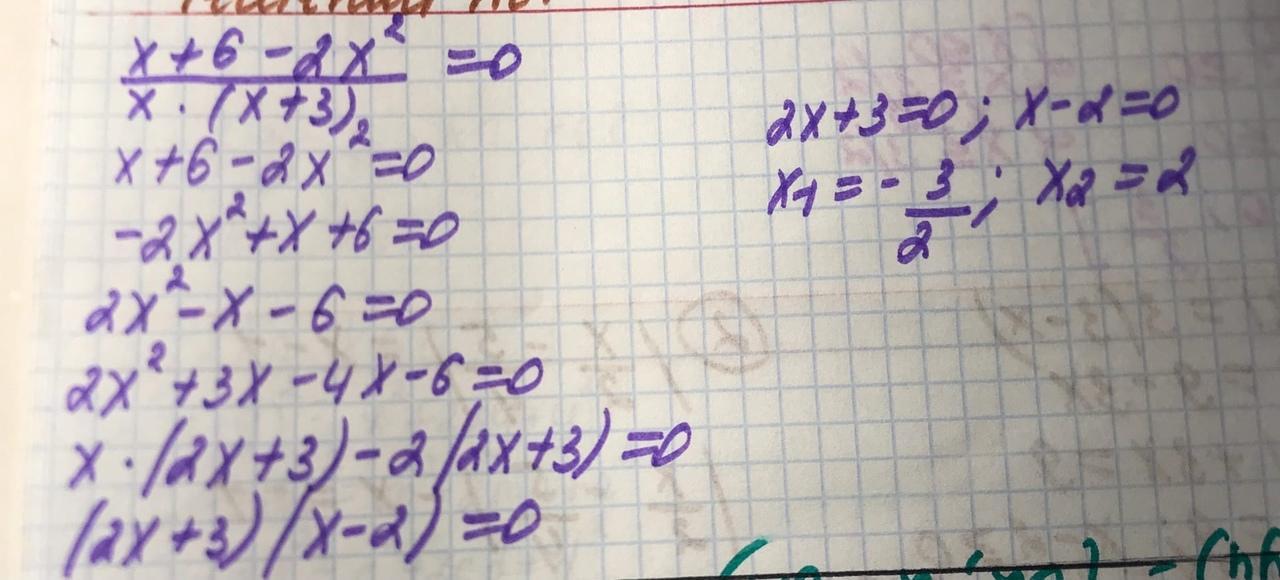 x + 6 - 2x² / x · (x + 3) = 0
x + 6 - 2x² = 0
-2x² + x + 6 = 0
2x² - x - 6 = 0
2x² + 3x - 4x - 6 = 0
x · (2x + 3) - 2(2x + 3) = 0
(2x + 3)(x - 2) = 0
2x + 3 = 0; x - 2 = 0
x₁ = - 3/2; x₂ = 2